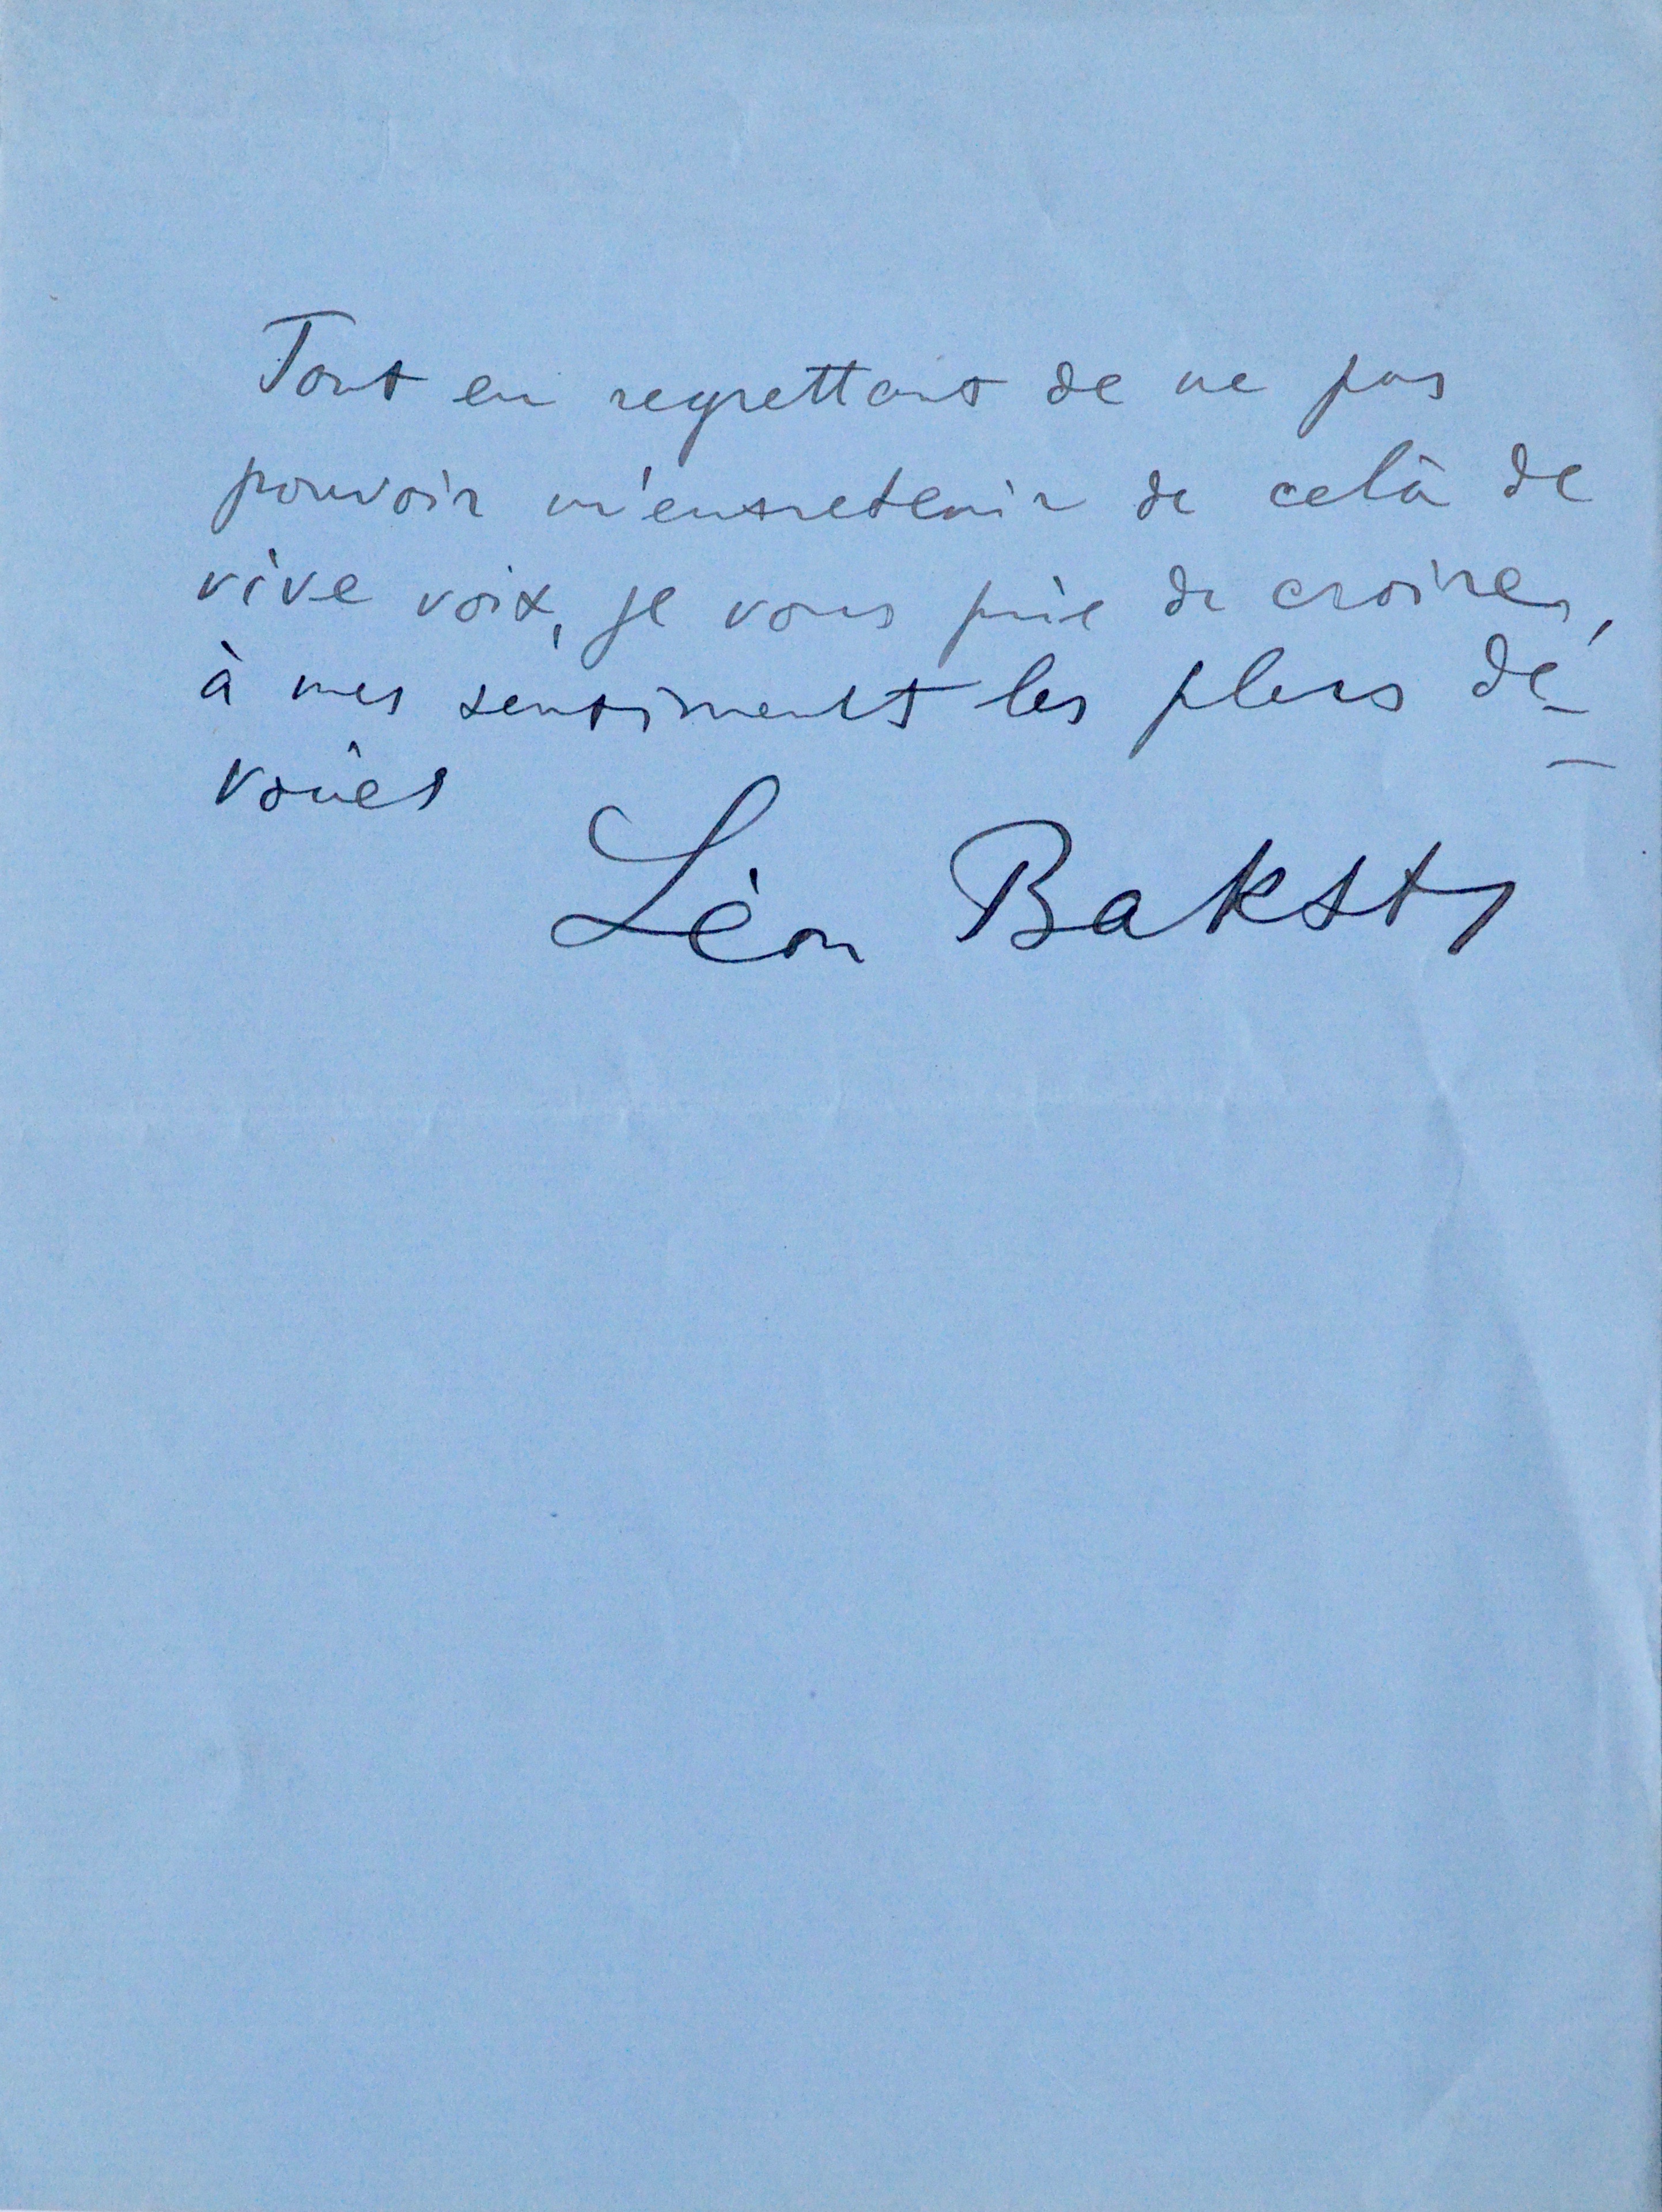 Tout en regrettant de ne pas
pouvoir m'entretenir de celà de
vive voix, je vous prie de croire,
à mes sentiments les plus dé-
voués
Léon Bakst